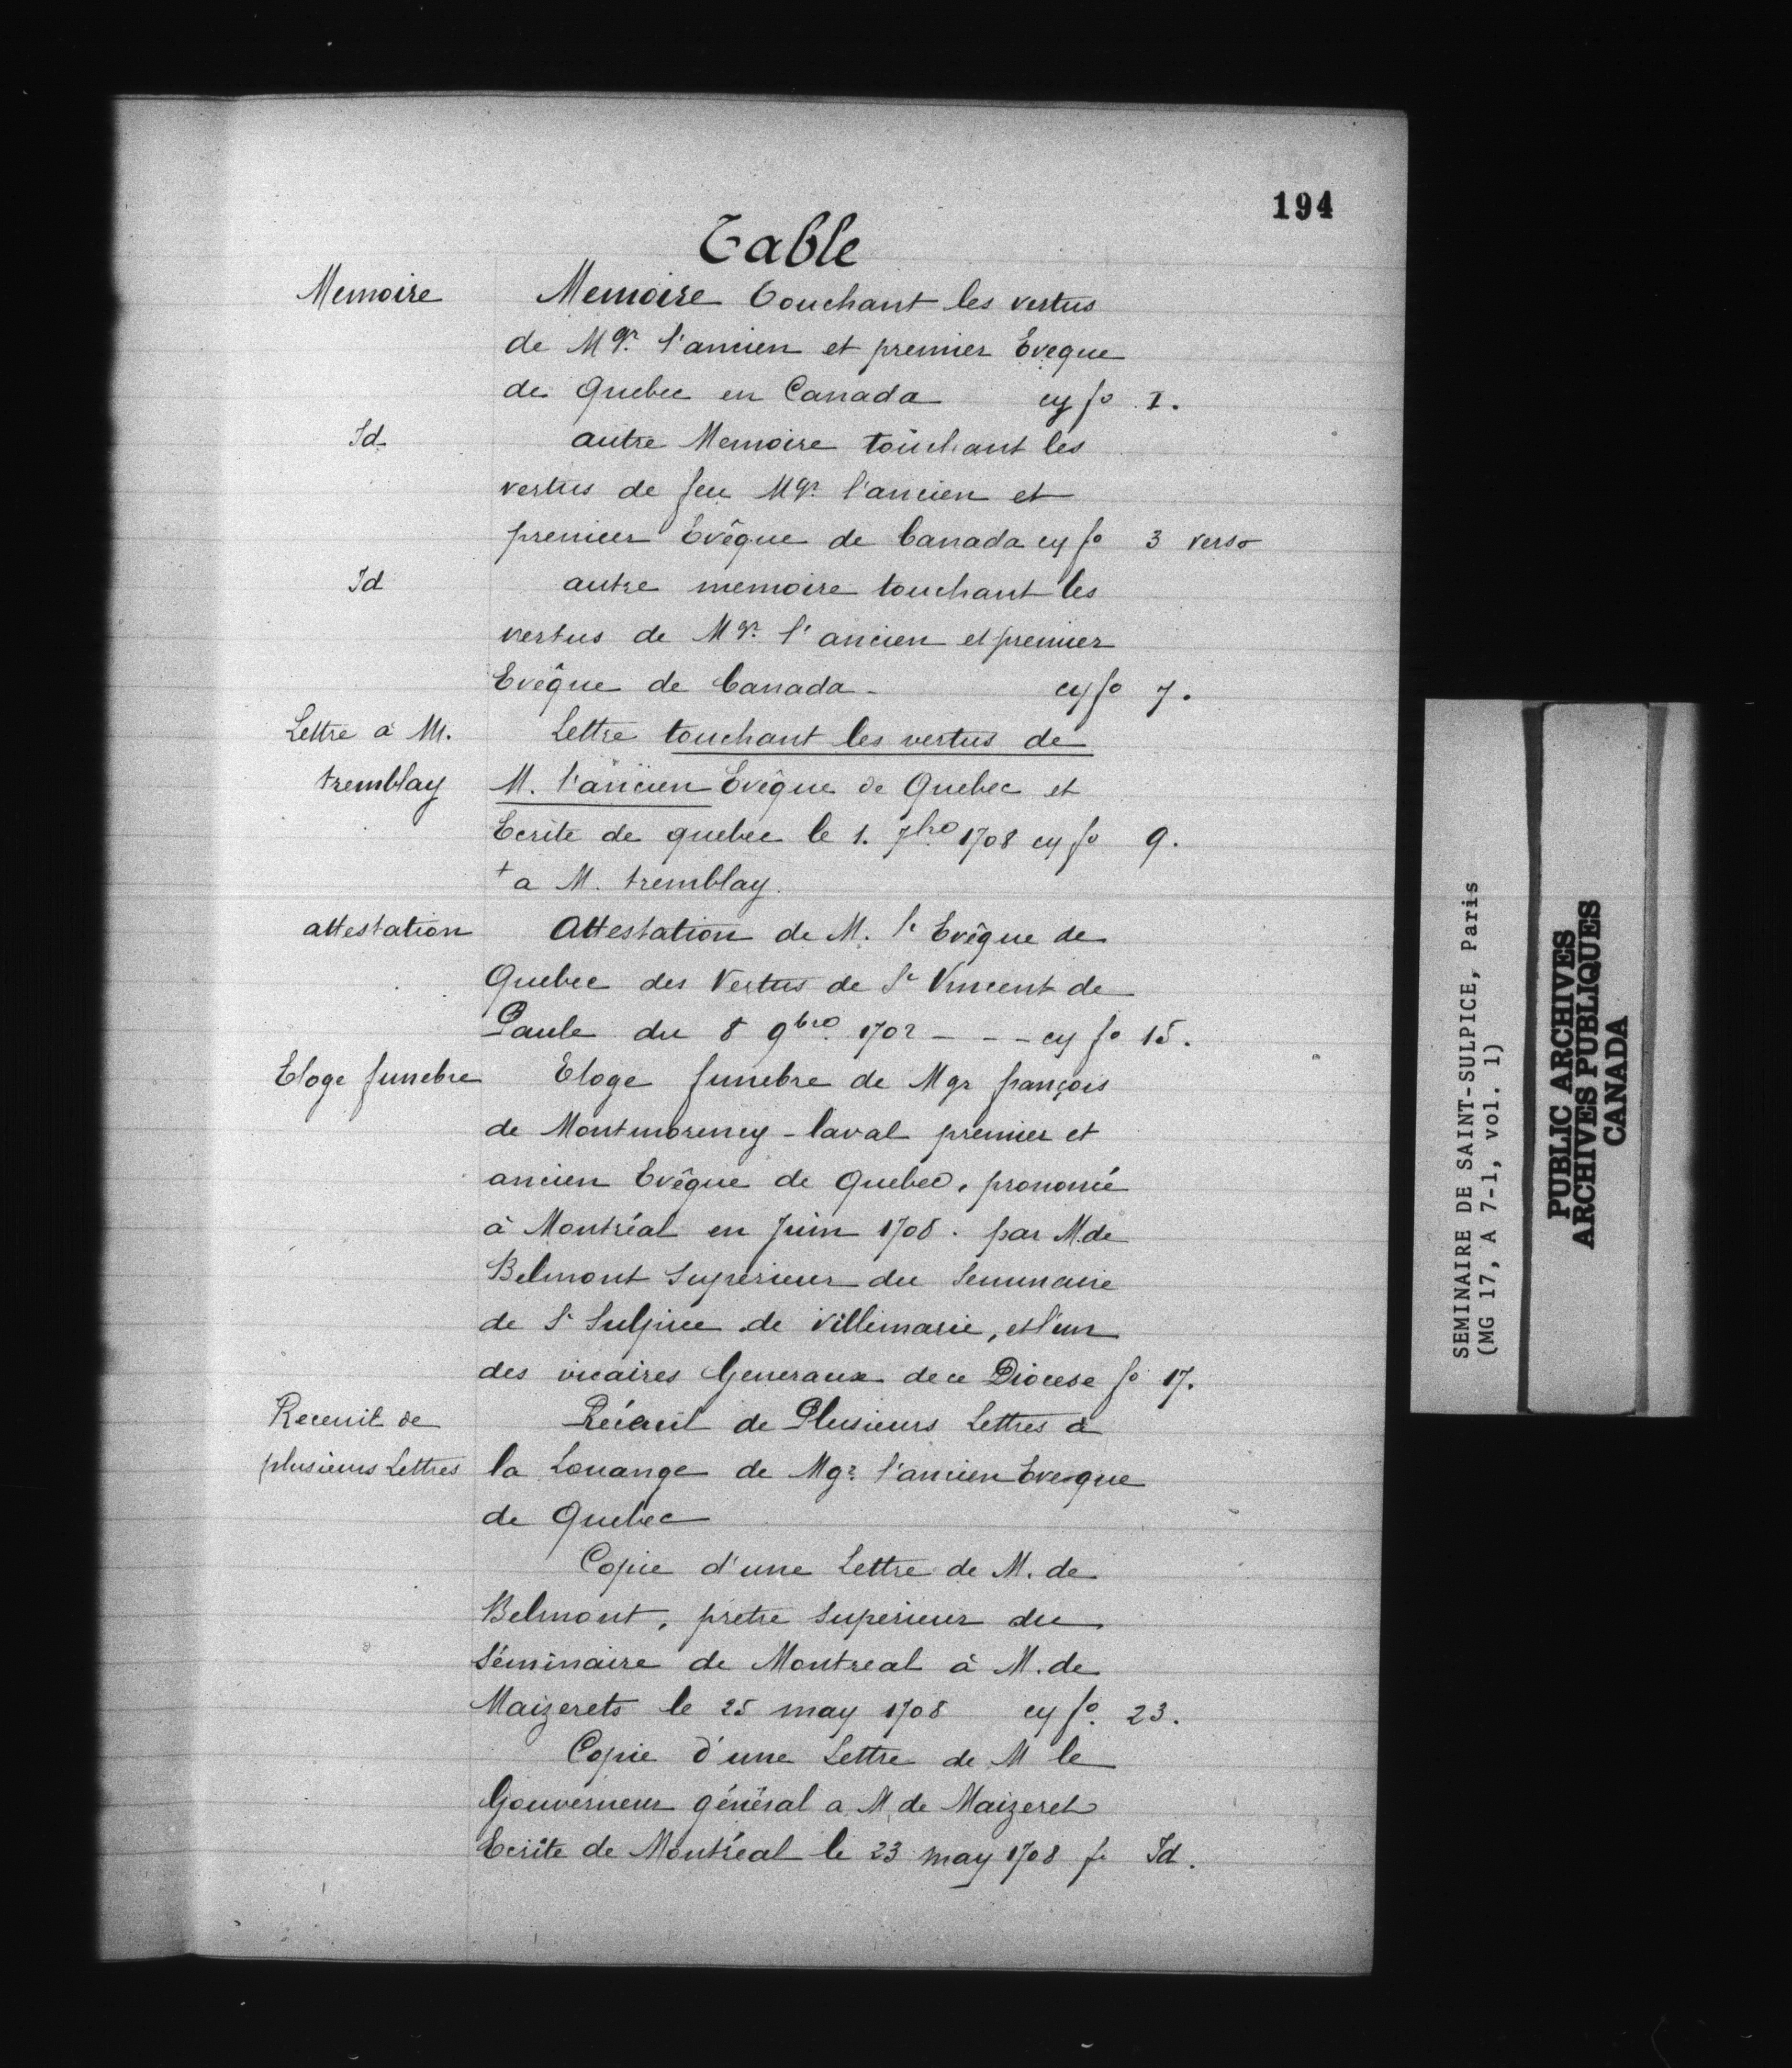 194
Table
Memoire Memoire touchant les vertus
de Mgr. l'ancien et premier Eveque
de Quebec en Canada cy fo 1.
Id autre Memoire touchant les
vertus de feu Mgr. l'ancien et
premier Evêque de Canada cy fo 3 verso
Id autre memoire touchant les
vertus de Mgr. l'ancien et premier
Evêque de Canada - cy fo 7.
Lettre à M. Lettre touchant les vertus de
tremblay M. l'ancien Evêque de Quebec et
Ecrite de quebec le 1. 7bre 1708 cy fo 9.
+ a M. tremblay.
attestation Attestation de M. l'Evêque de
Quebec des Vertus de St Vincent de
Paule du 8 9bre. 1702 - - - cy fo 15.
Eloge funebre Eloge funebre de Mgr françois
de Montmorency-laval premier et
ancien Evêque de Quebec, prononcé
à Montréal en Juin 1708. par M. de
Belmont Superieur du Seminaire
de St Sulpice de Villemarie, et l'un
des vicaires Generaux de ce Diocese fo 17.
Receuil de Récueil de Plusieurs Lettres à
plusieurs Lettres la Louange de Mgr. l'ancien Evesque
de Quebec
Copie d'une Lettre de M. de
Belmont, pretre Superieur du
Séminaire de Montreal à M. de
Maizerets le 25 may 1708 cy fo. 23.
Copie d'une Lettre de M le
Gouverneur général a M. de Maizeret
Ecrite de Montréal le 23 may 1708 fo Id.
SEMINAIRE DE SAINT-SULPICE, Paris
(MG 17, A 7-1, vol. 1)
PUBLIC ARCHIVES
ARCHIVES PUBLIQUES
CANADA